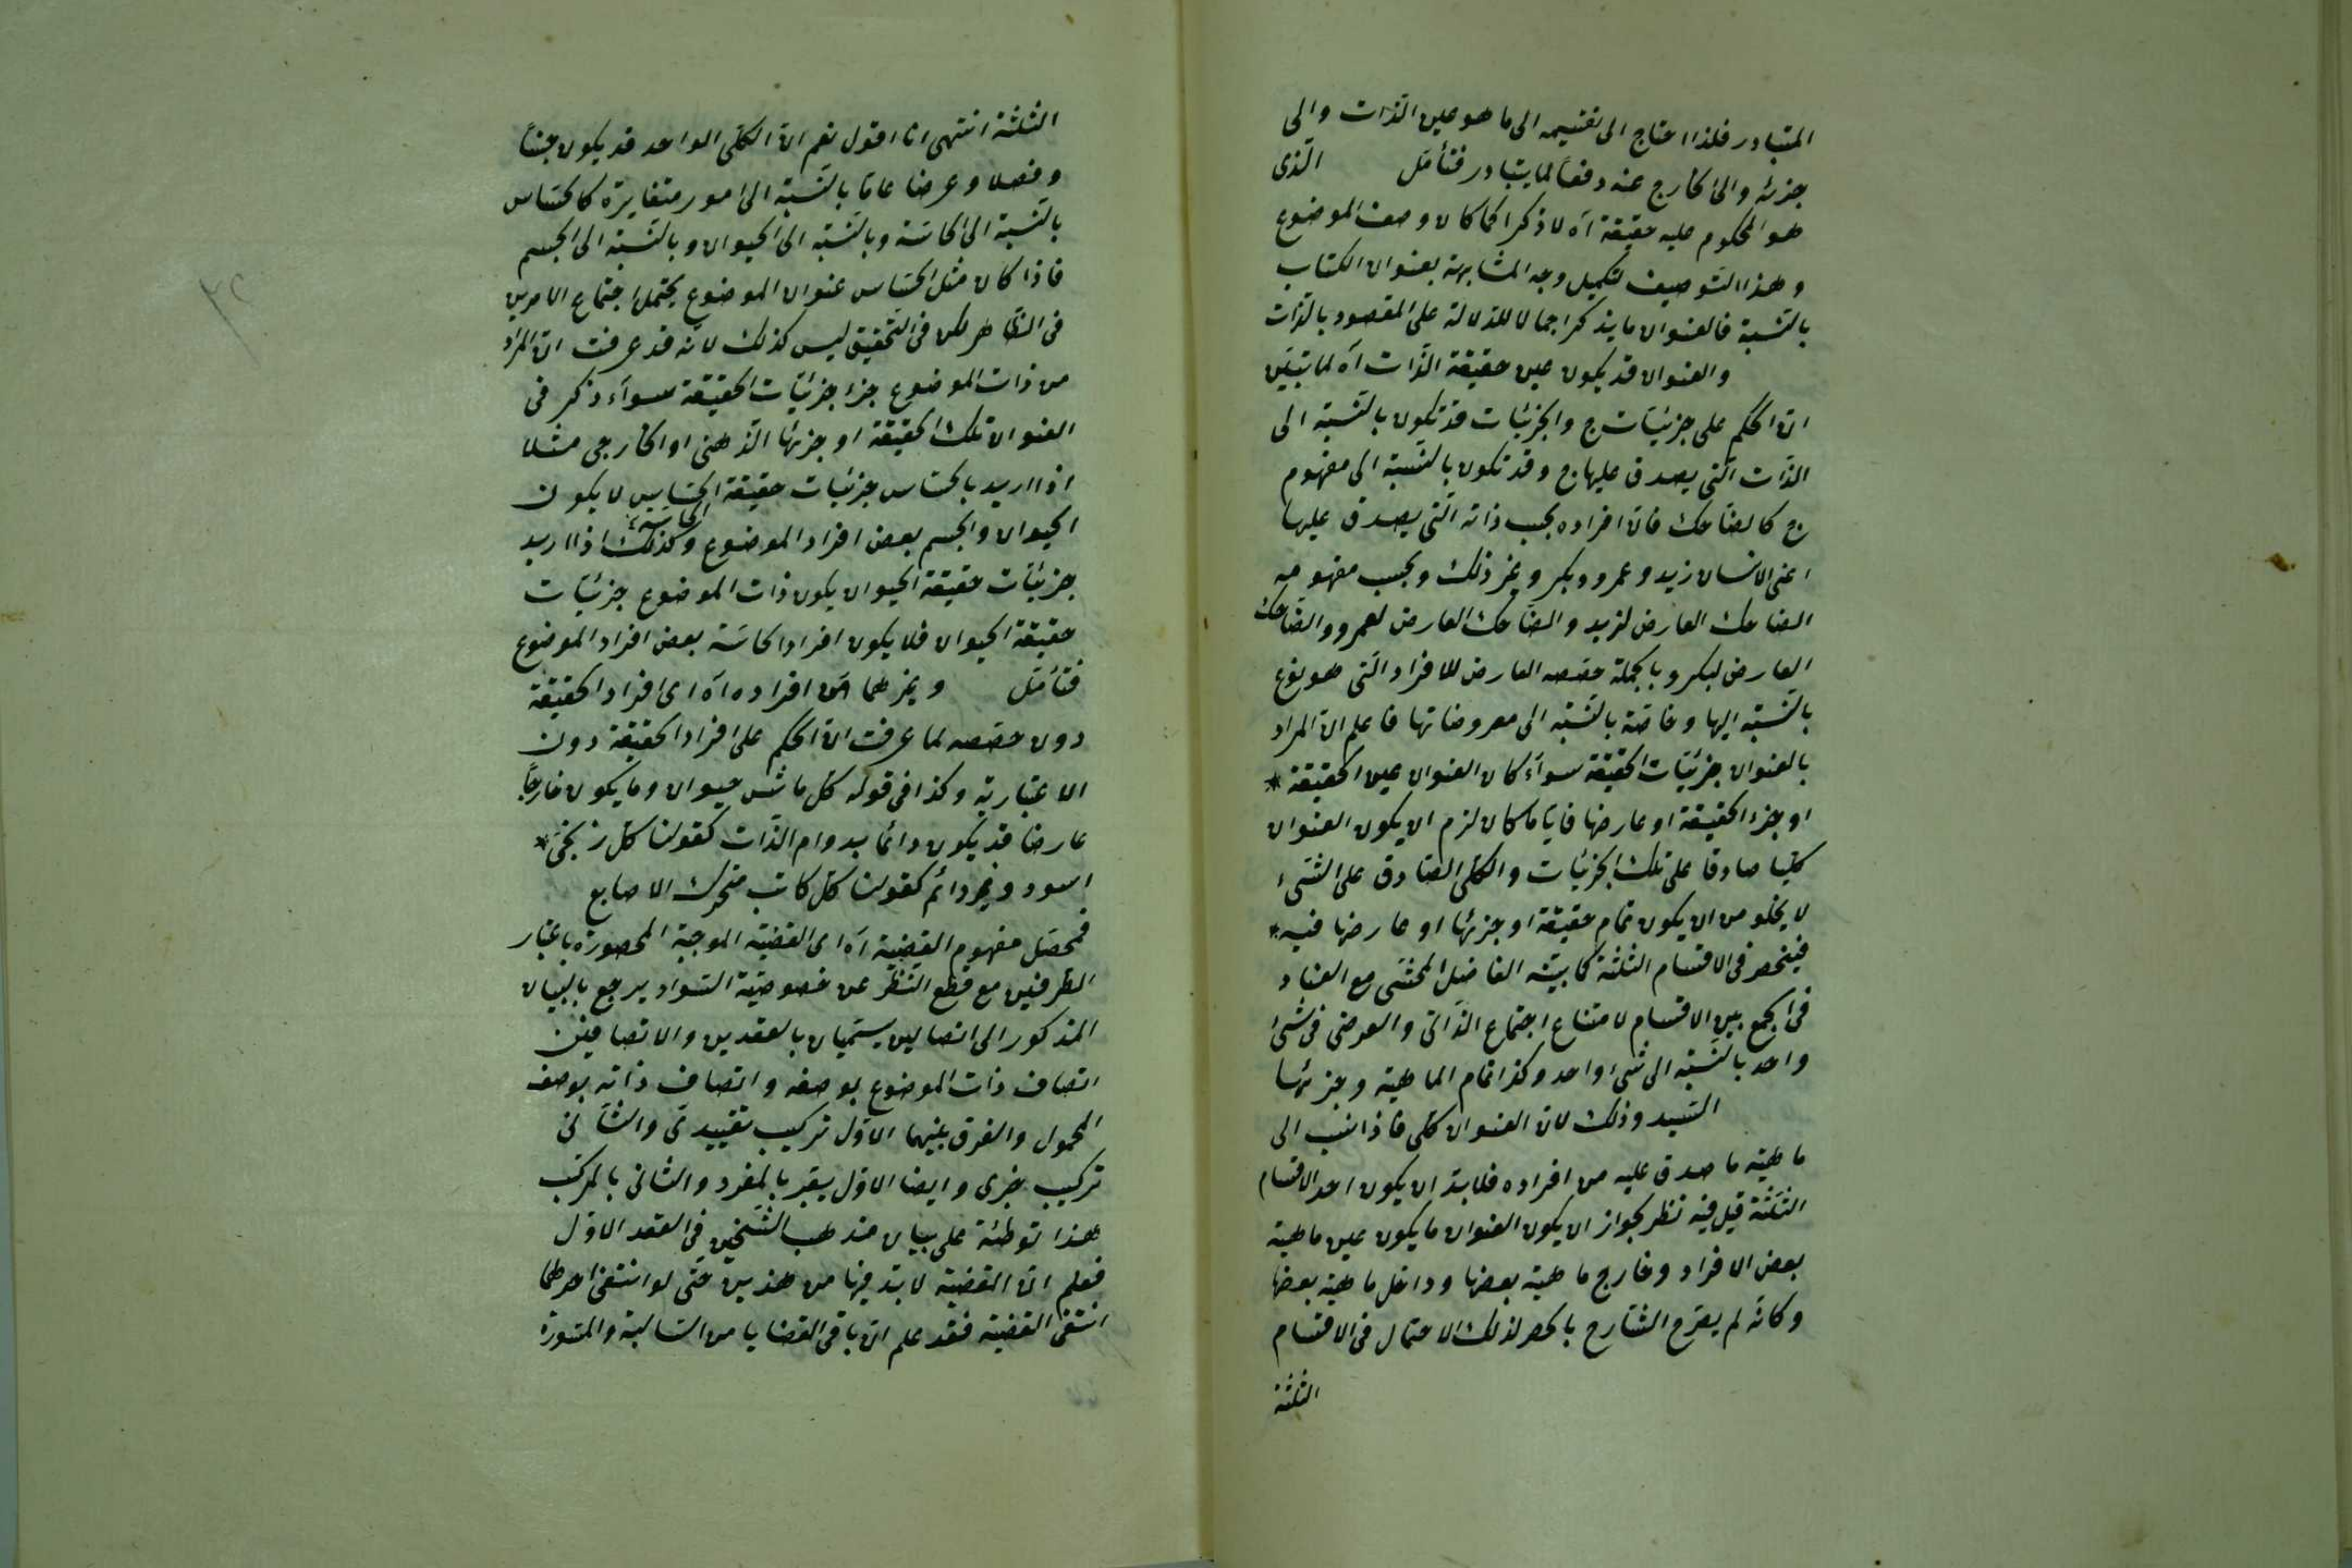 المتبادر فلذا احتاج الى تقسيمه الى ما هو عين الذات والى
جزئه والى الخارج عنه دفعا لما يتبادر فتأمّل الّذى
هو المحكوم عليه حقيقة آه لا ذكرا كما كان وصف الموضوع
وهذا التوصيف لتكميل وجه المشابهة بعنوان الكتاب
بالنّسبة فالعنوان ما يذكر اجمالا للدلالة على المقصود بالذّات
والعنوان قد يكون عين حقيقة الذّات آه لما تبيّن
انّ الحكم على جزئيّات ج والجزئيات قد تكون بالنّسبة الى
الذّات الّتى يصدق عليها ج وقد تكون بالنّسبة الى مفهوم
ج كالضّاحك فانّ افراده بحسب ذاته الّتى يصدق عليها
اعنى الانسان زيد وعمرو وبكر وغير ذلك وبحسب مفهومه
الضاحك العارض لزيد والضّاحك العارض لعمرو والضّاحك
العارض لبكر وبالجملة حصصه العارض للافراد الّتى هو نوع
بالنّسبة اليها وخاصّة بالنّسبة الى معروضاتها فاعلم انّ المراد
بالعنوان جزئيّات الحقيقة سوآء كان العنوان عين الحقيقة *
او جزء الحقيقة او عارضها فايّا ما كان لزم ان يكون العنوان
كليّا صادقا على تلك الجزئيات والكلّى الصّادق على الشّئ
لا يخلو من ان يكون تمام حقيقة او جزئها او عارضها فيه *
فينحصر فى الاقسام الثلثة كما بيّنه الفاضل المحشّى مع العناد
فى الجمع بين الاقسام لامتناع اجتماع الذّاتى والعرضى فى شئ
واحد بالنّسبة الى شئ واحد وكذا تمام الماهيّة وجزئها
السّيد وذلك لانّ العنوان كلّى فاذا نسب الى
ماهيّة ما صدق عليه من افراده فلا بدّ ان يكون احد الاقسام
الثلثة قيل فيه نظر لجواز ان يكون العنوان ما يكون عين ماهيّة
بعض الافراد وخارج ماهيّة بعضها وداخل ماهيّة بعضها
وكانّه لم يصرّح الشّارح بالحصر لذلك الاحتمال فى الاقسام
الثلثة
الثلثة انتهى انا اقول نعم انّ الكلّى الواحد قد يكون جنسًا
وفصلا وعرضا عامّا بالنّسبة الى امور متغايرة كالحسّاس
بالنّسبة الى الحاسّة وبالنّسبة الى الحيوان وبالنّسبة الى الجسم
فاذا كان مثل الحسّاس عنوان الموضوع يحتمل اجتماع الامرين
فى الظّاهر لكن فى التّحقيق ليس كذلك لانّه قد عرفت انّ المراد
من ذات الموضوع جزء جزئيّات الحقيقة سوآء ذكر فى
العنوان تلك الحقيقة او جزئها الذّهنى او الخارجى مثلا
اذا اريد بالحسّاس جزئيّات حقيقة الحسّاس لا يكون
الحاسّة
الحيوان والجسم بعض افراد الموضوع وكذلك اذا اريد
جزئيّات حقيقة الحيوان يكون ذات الموضوع جزئيّات
حقيقة الحيوان فلا يكون افراد الحاسّة بعض افراد الموضوع
فتأمّل وغيرهما من افراده آه اى افراد الحقيقة
دون حصصه لما عرفت انّ الحكم على افراد الحقيقة دون
الاعتباريّة وكذا فى قوله كلّ ماش حيوان وما يكون خارجًا
عارضا قد يكون دائما بدوام الذّات كقولنا كلّ زنجىّ *
اسود وغير دائم كقولنا كلّ كاتب متحرّك الاصابع
فمحصّل مفهوم القضيّة آه اى القضيّة الموجبة المحصورة باعتبار
الطّرفين مع قطع النّظر عن خصوصيّة السّواد يرجع بالبيان
المذكور الى اتصالين يسمّيان بالعقدين والاتصافين
اتصاف ذات الموضوع بوصفه واتصاف ذاته بوصف
المحمول والفرق بينهما الاوّل تركيب تقييدىّ والثّانى
تركيب خبرى وايضا الاوّل يعبّر بالمفرد والثانى بالمركّب
هذا توطئة على بيان مذهب الشّيخين فى العقد الاوّل
فعلم انّ القضيّة لا بدّ فيها من هذين حتّى لو انتفى احدهما
انتفى القضيّة فقد علم انّ باقى القضايا من السّالبة والمسوّرة